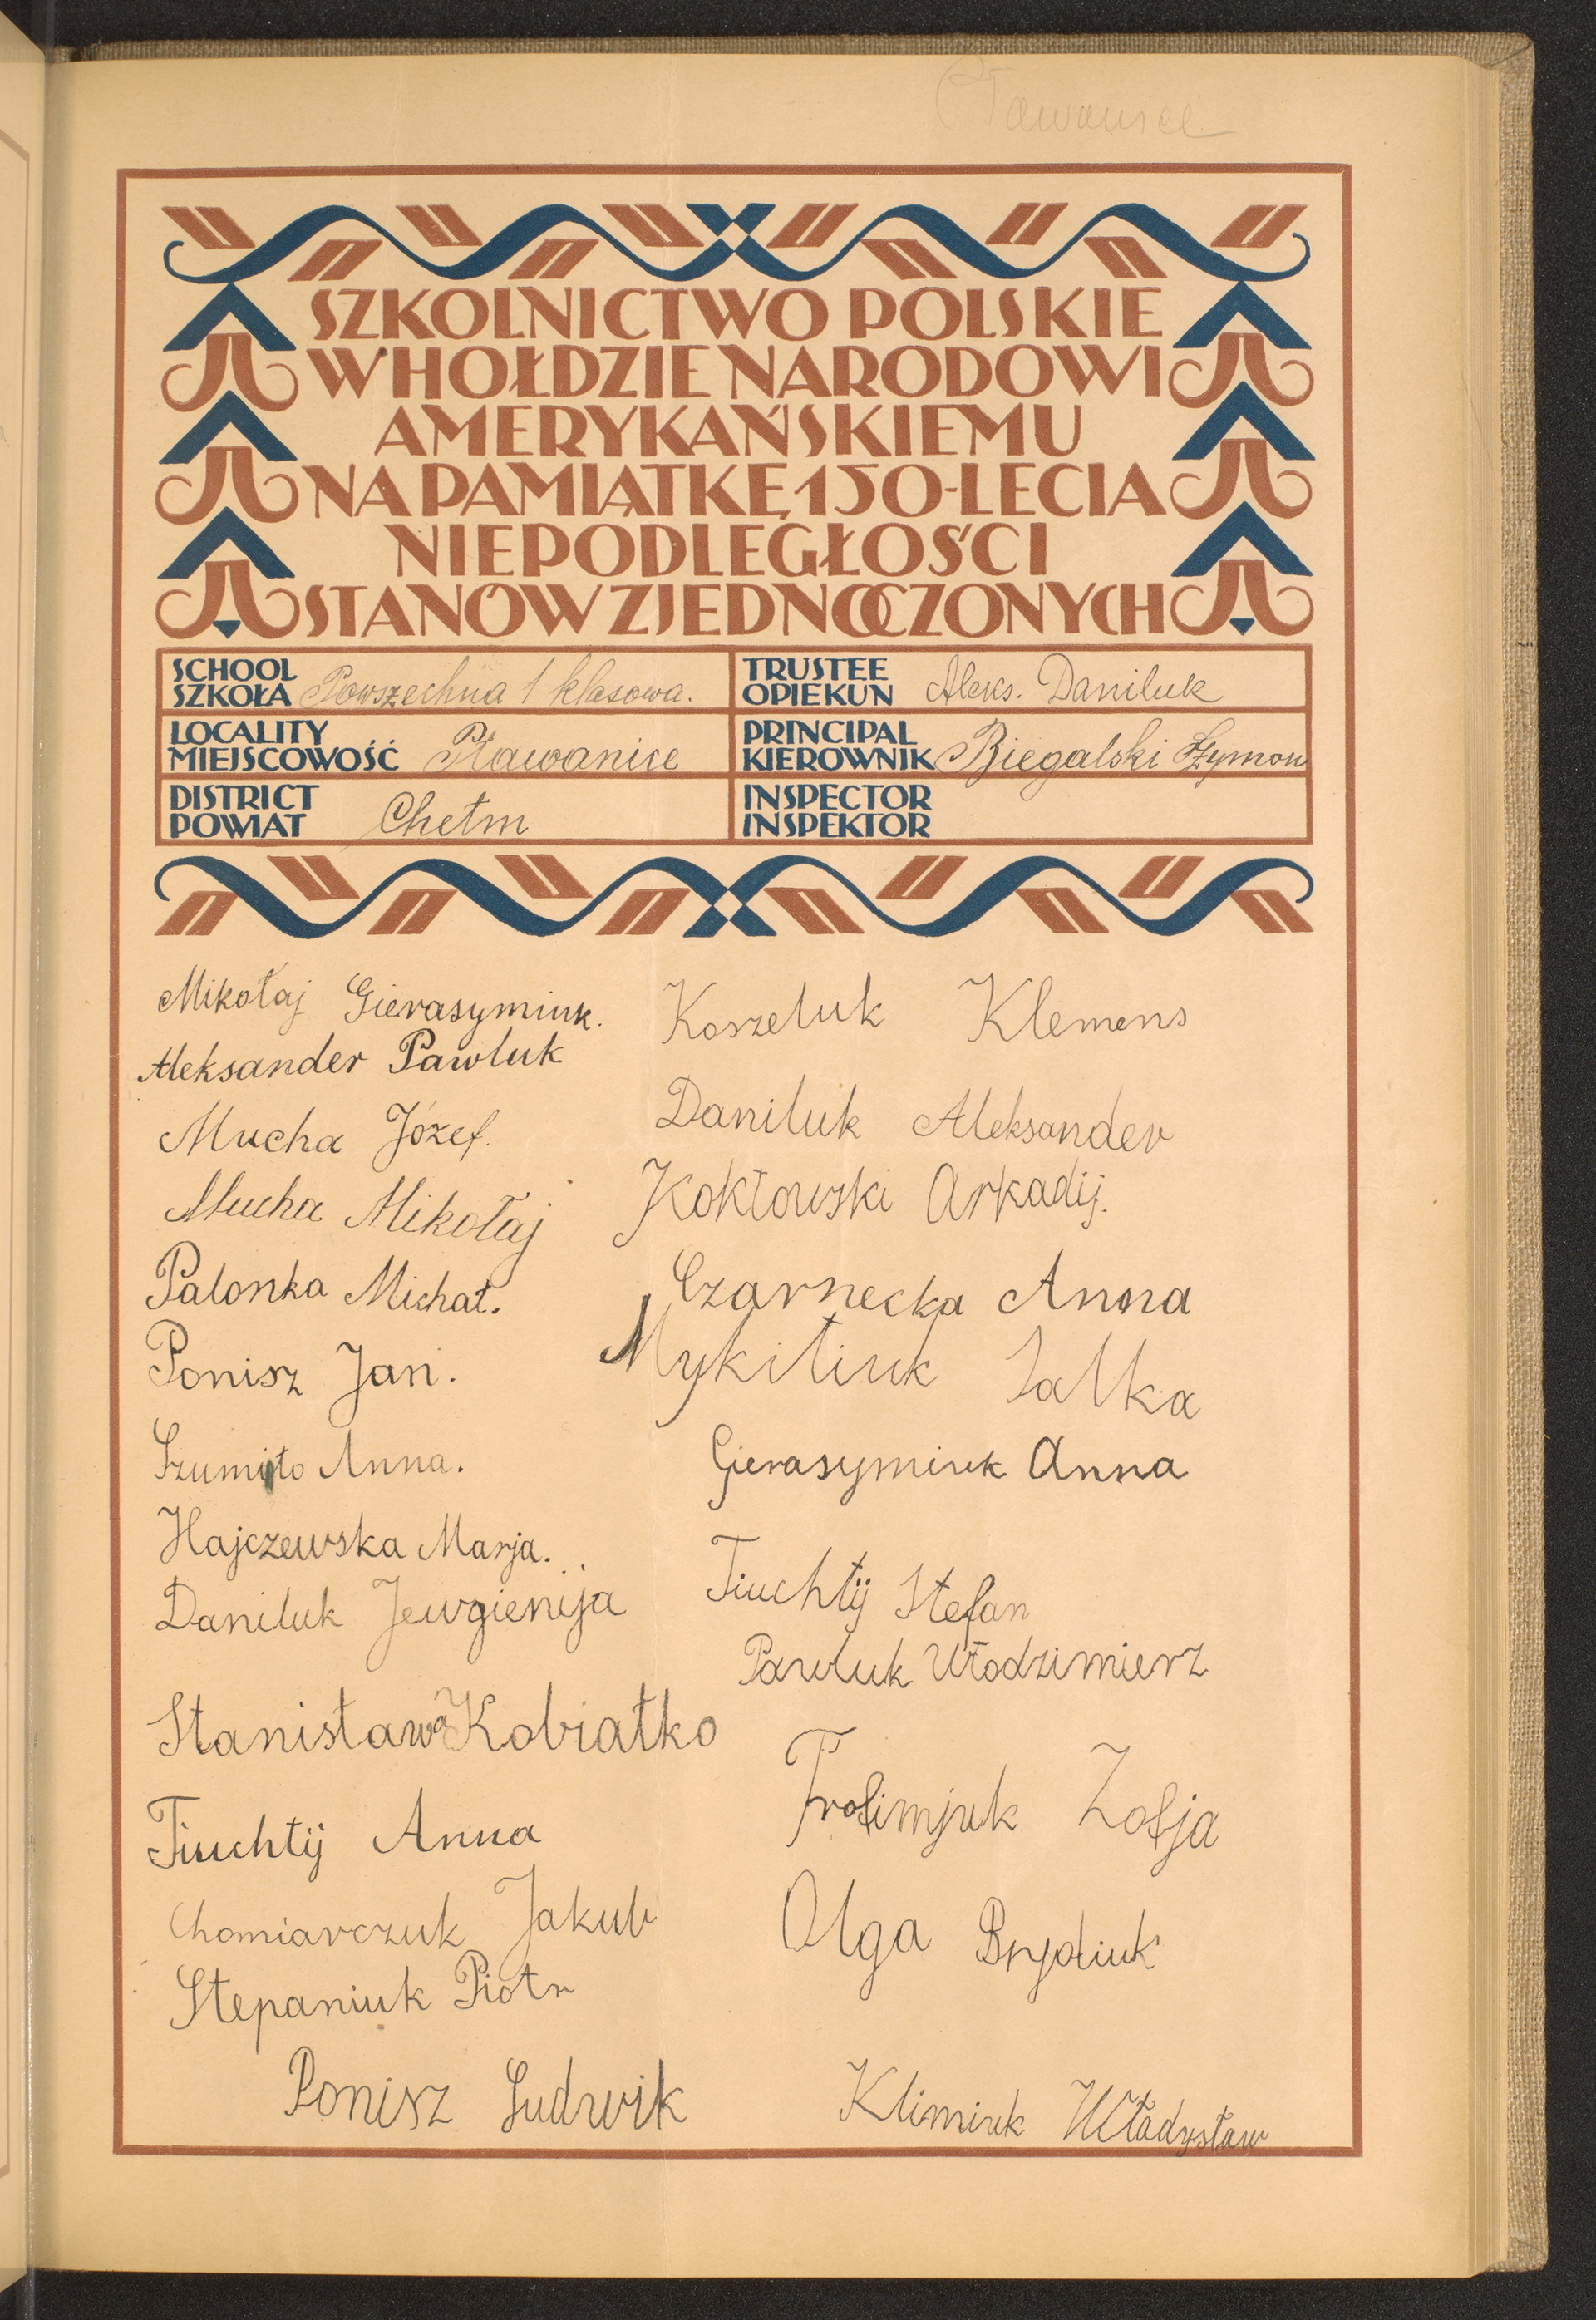 Pławanice
SZKOLNICTWO POLSKIE
W HOŁDZIE NARODOWI
AMERYKAŃSKIEMU
NA PAMIĄTKĘ 150-LECIA
NIEPODLEGŁOŚCI
STANÓW ZJEDNOCZONYCH
SCHOOL
SZKOŁA Powszechna 1 klasowa.
TRUSTEE
OPIEKUN Aleks. Daniluk
LOCALITY
MIEJSCOWOŚĆ Pławanice
PRINCIPAL
KIEROWNIK Biegalski Szymon
DISTRICT
POWIAT Chełm
INSPECTOR
INSPEKTOR
Mikołaj Gierasymiuk.
Aleksander Pawluk
Mucha Józef.
Mucha Mikołaj
Palonka Michał.
Ponisz Jan.
Szumiło Anna.
Hajczewska Marja.
Daniluk Jewgienija
Stanisława Kobiałko
Tiuchtij Anna
Chomiarczuk Jakub
Stepaniuk Piotr
Ponisz Ludwik
Koszeluk Klemens
Daniluk Aleksander
Kokłowski Arkadij.
Czarnecka Anna
Mykitiuk
Gierasymiuk Anna
Tiuchtij Stefan
Pawluk Włodzimierz
Trofimjuk Zofja
Olga Brydiuk
Klimiuk Władysław